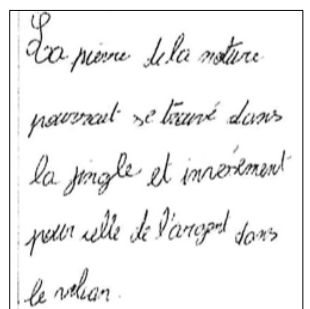 La pierre de la nature
pourrait se trouvé dans
la jingle et inversement
pour celle de l'argent dans
le volcan.